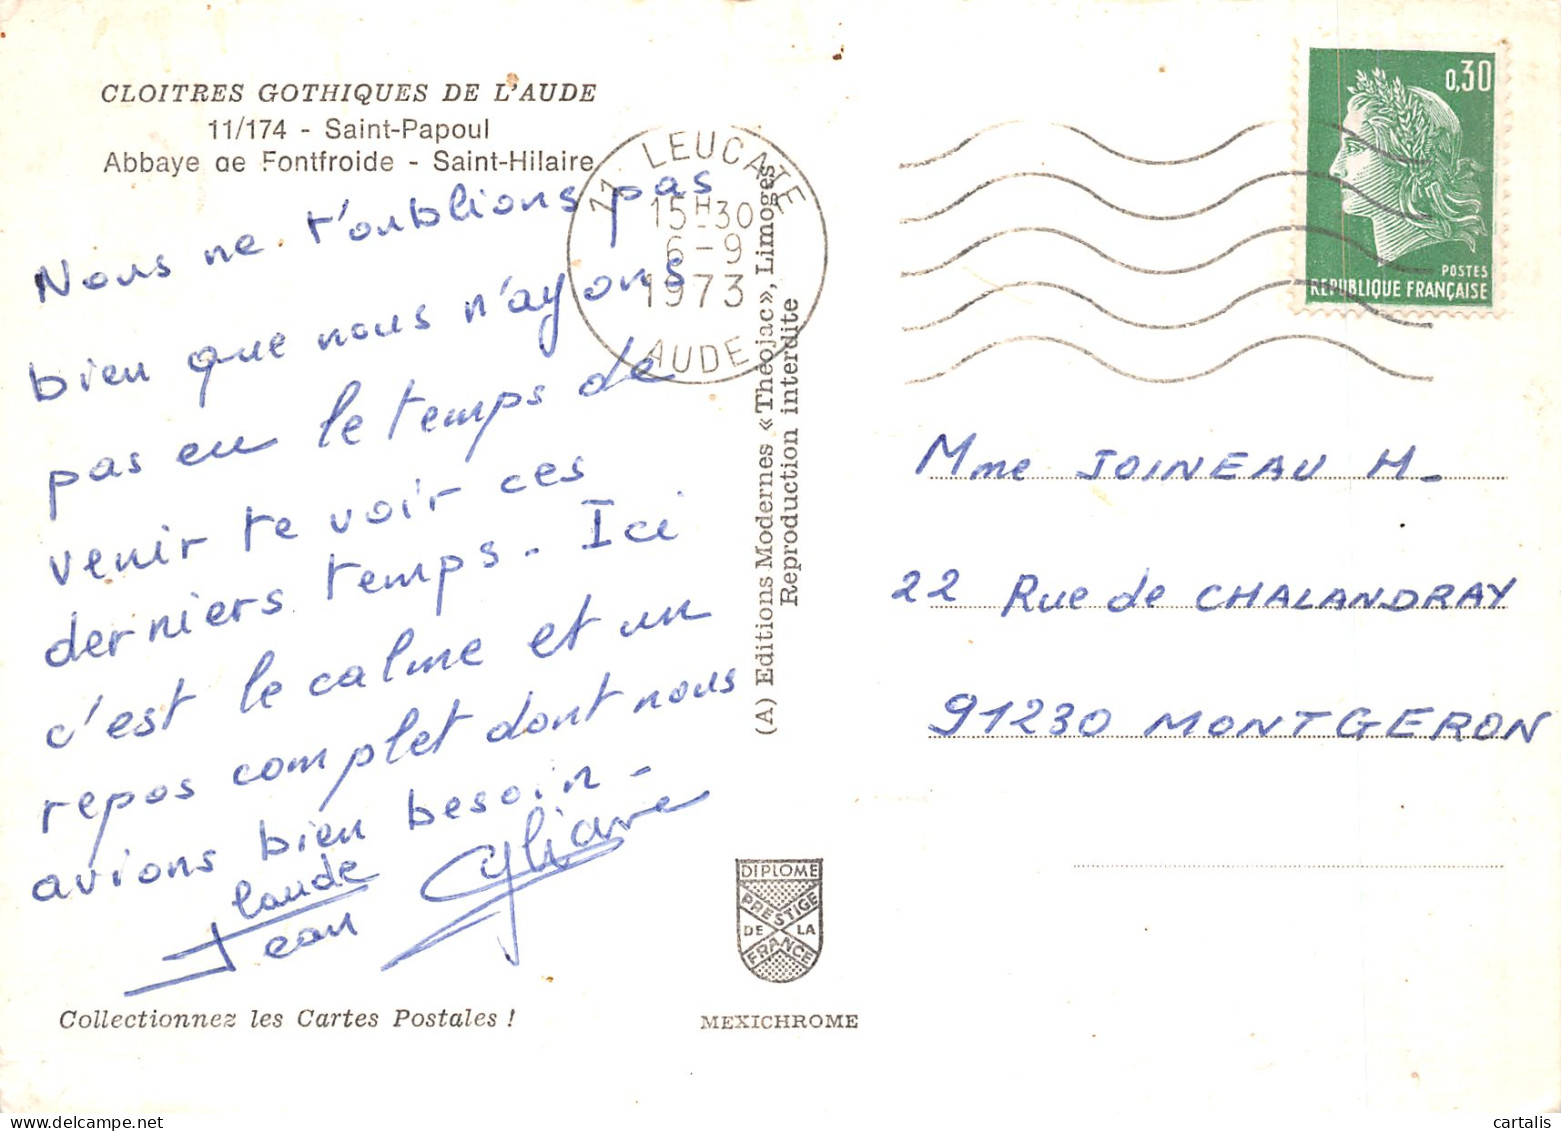 CLOITRES GOTHIQUES DE L'AUDE
11/174 - Saint-Papoul
Abbaye de Fontfroide - Saint-Hilaire
Nous ne t'oublions pas
bien que nous n'ayons
pas eu le temps de
venir te voir ces
derniers temps - Ici
c'est le calme et un
repos complet dont nous
avions bien besoin -
Claude
Jean
Collectionnez les Cartes Postales !
11 LEUCATE
15H30
6-9
1973
AUDE
(A) Editions Modernes «Théojac», Limoges
Reproduction interdite
DIPLOME
PRESTIGE
DE LA
FRANCE
MEXICHROME
0,30
POSTES
REPUBLIQUE FRANÇAISE
Mme JOINEAU H_
22 Rue de CHALANDRAY
91230 MONTGERON
cartalis